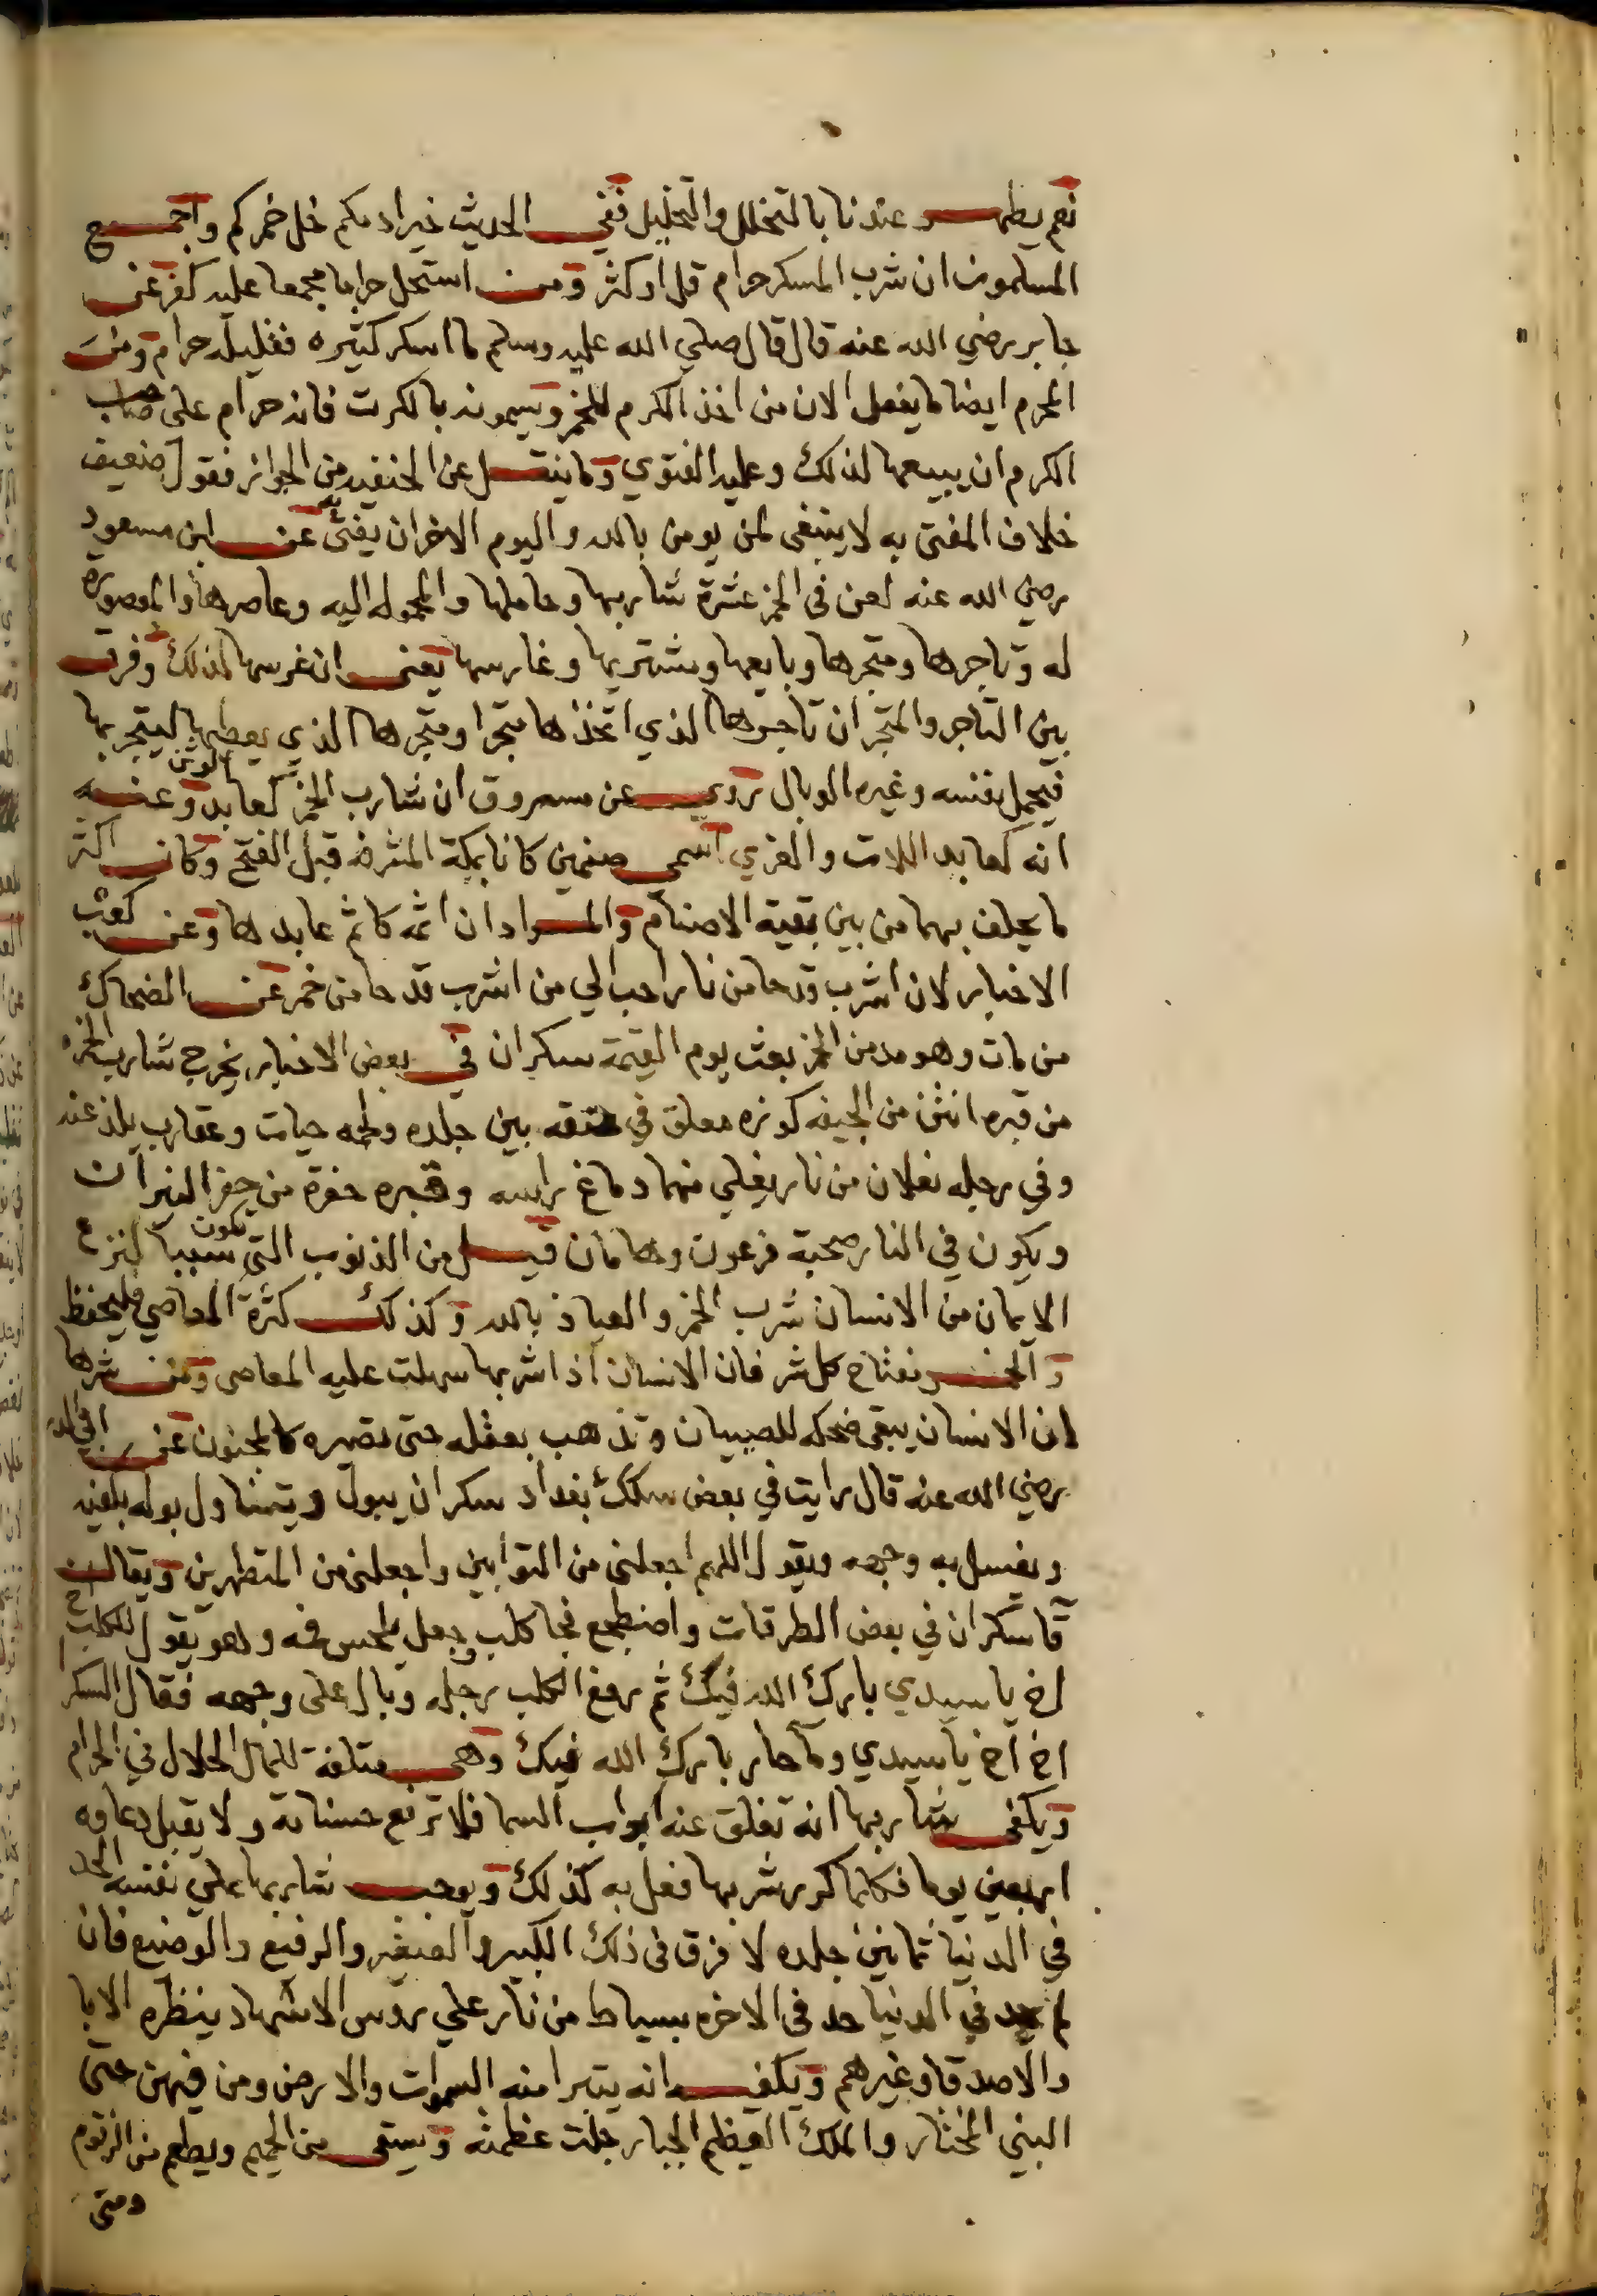 نعم يطهر عندنا بالتخلل والتخليل ففي الحديث خير ادمكم خل خمركم واجمع
المسلمون ان شرب المسكر حرام قل او كثر ومن استحل حراما مجمعا عليه كفر عن
جابر رضي الله عنه قال قال صلي الله عليه وسلم ما اسكر كثيره فقليله حرام ومن
المحرم ايضا ما يفعل الان من اخذ الكرم للخمر ويسمونه بالكرت فانه حرام على صاحب
الكرم ان يبيعها لذلك وعليه الفتوي وما ينقل عن الحنفيه من الجواز فقول ضعيف
خلاف المفتى به لا ينبغى لمن يومن بالله واليوم الاخر ان يفتى به عن ابن مسعود
رضي الله عنه لعن فى الخمر عشرة شاربها وحاملها والمحموله اليه وعاصرها والمعصوره
له وتاجرها ومتجرها وبايعها ومشتريها وغارسها يعنى ان غرسها لذلك وفرق
بين التاجر والمتجر ان تاجرها الذي اتخذها متجرا ومتجرها الذي يعطيها ليتجر بها
فيحمل نفسه وغيره الوبال روي عن مسروق ان شارب الخمر كعابد الوثن وعنه
انه كعابد اللات والعزي اسمى صنمين كانا بمكة المشرفه قبل الفتح وكان اكثر
ما يحلف بهما من بين بقية الاصنام والمراد ان اثمه كاثم عابدها وعن كعب
الاخبار لان اشرب قدحا من نار احب الي من اشرب قدحا من خمر عن الضحاك
من مات وهو مدمن الخمر بعث يوم القيمة سكران في بعض الاخبار يخرج شارب الخمر
من قبره انتن من الجيفه كوزه معلق في عنقه بين جلده ولحمه حيات وعقارب يلدغنه
وفي رجليه نعلان من نار يغلي منهما دماغ راسه وقبره حفرة من حفر النيران
ويكون في النار صحبة فرعون وهامان قيل من الذنوب التي تكون سببا لنزع
الايمان من الانسان شرب الخمر والعياذ بالله وكذلك كثرة المعاصي فليحفظ
والخمر مفتاح كل شر فان الانسان اذا شربها سهلت عليه المعاصى ومن شرها
ان الانسان يبقى ضحكه للصبيان وتذهب بعقله حتى تصيره كالمجنون عن ابن ابي الدنيا
رضي الله عنه قال رايت في بعض سكك بغداد سكران يبول ويتناول بوله بكفيه
ويغسل به وجهه ويقول اللهم اجعلنى من التوابين واجعلنى من المتطهرين ويقال ان
قا سكران في بعض الطرقات واضطجع فجا كلب وجعل يلحس فمه وهو يقول للكلب اخ
اخ يا سيدي بارك الله فيك ثم رفع الكلب رجله وبال على وجهه فقال السكر
اخ اخ يا سيدي وما حار بارك الله فيك وهى متلفة للمال الحلال في الحرام
ويكفى شاربها انه تغلق عنه ابواب السما فلا ترفع حسناته ولا يقبل دعاوه
اربعين يوما فكلما كرر شربها فعل به كذلك ويوجب شاربها علي نفسه الحد
في الدنيا ثمانين جلده لا فرق فى ذلك الكبير والصغير والرفيع والوضيع فان
لم يحد في الدنيا حد فى الاخره بسياط من نار علي روس الاشهاد ينظره الابا
والاصدقا وغيرهم ويكفيه انه يتبرا منه السموات والارض ومن فيهن حتى
النبي المختار والملك العظيم الجبار جلت عظمته ويسقى من الحميم ويطعم من الزقوم
ومتى